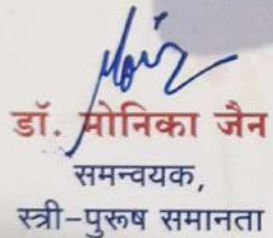 डॉ. मोनिका जैन
समन्वयक,
स्त्री-पुरूष समानता